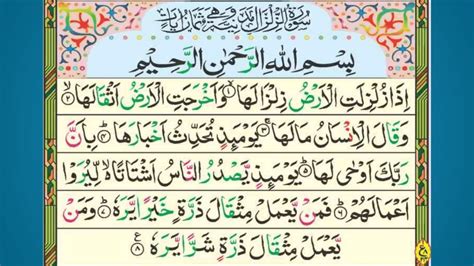 سُوْرَةُ الزِّلْزَالِ
بِسْمِ اللهِ الرَّحْمٰنِ الرَّحِيْمِ
اِذَا زُلْزِلَتِ الْاَرْضُ زِلْزَالَهَا ۙ﴿۱﴾ وَاَخْرَجَتِ الْاَرْضُ اَثْقَالَهَا ۙ﴿۲﴾
وَقَالَ الْاِنْسَانُ مَالَهَا ۚ﴿۳﴾ يَوْمَئِذٍ تُحَدِّثُ اَخْبَارَهَا ۙ﴿۴﴾ بِاَنَّ
رَبَّكَ اَوْحٰى لَهَا ؕ﴿۵﴾ يَوْمَئِذٍ يَّصْدُرُ النَّاسُ اَشْتَاتًا ۙ۬ لِّيُرَوْا
اَعْمَالَهُمْ ؕ﴿۶﴾ فَمَنْ يَّعْمَلْ مِثْقَالَ ذَرَّةٍ خَيْرًا يَّرَهٗ ؕ﴿۷﴾ وَمَنْ
يَّعْمَلْ مِثْقَالَ ذَرَّةٍ شَرًّا يَّرَهٗ ﴿۸﴾ ع